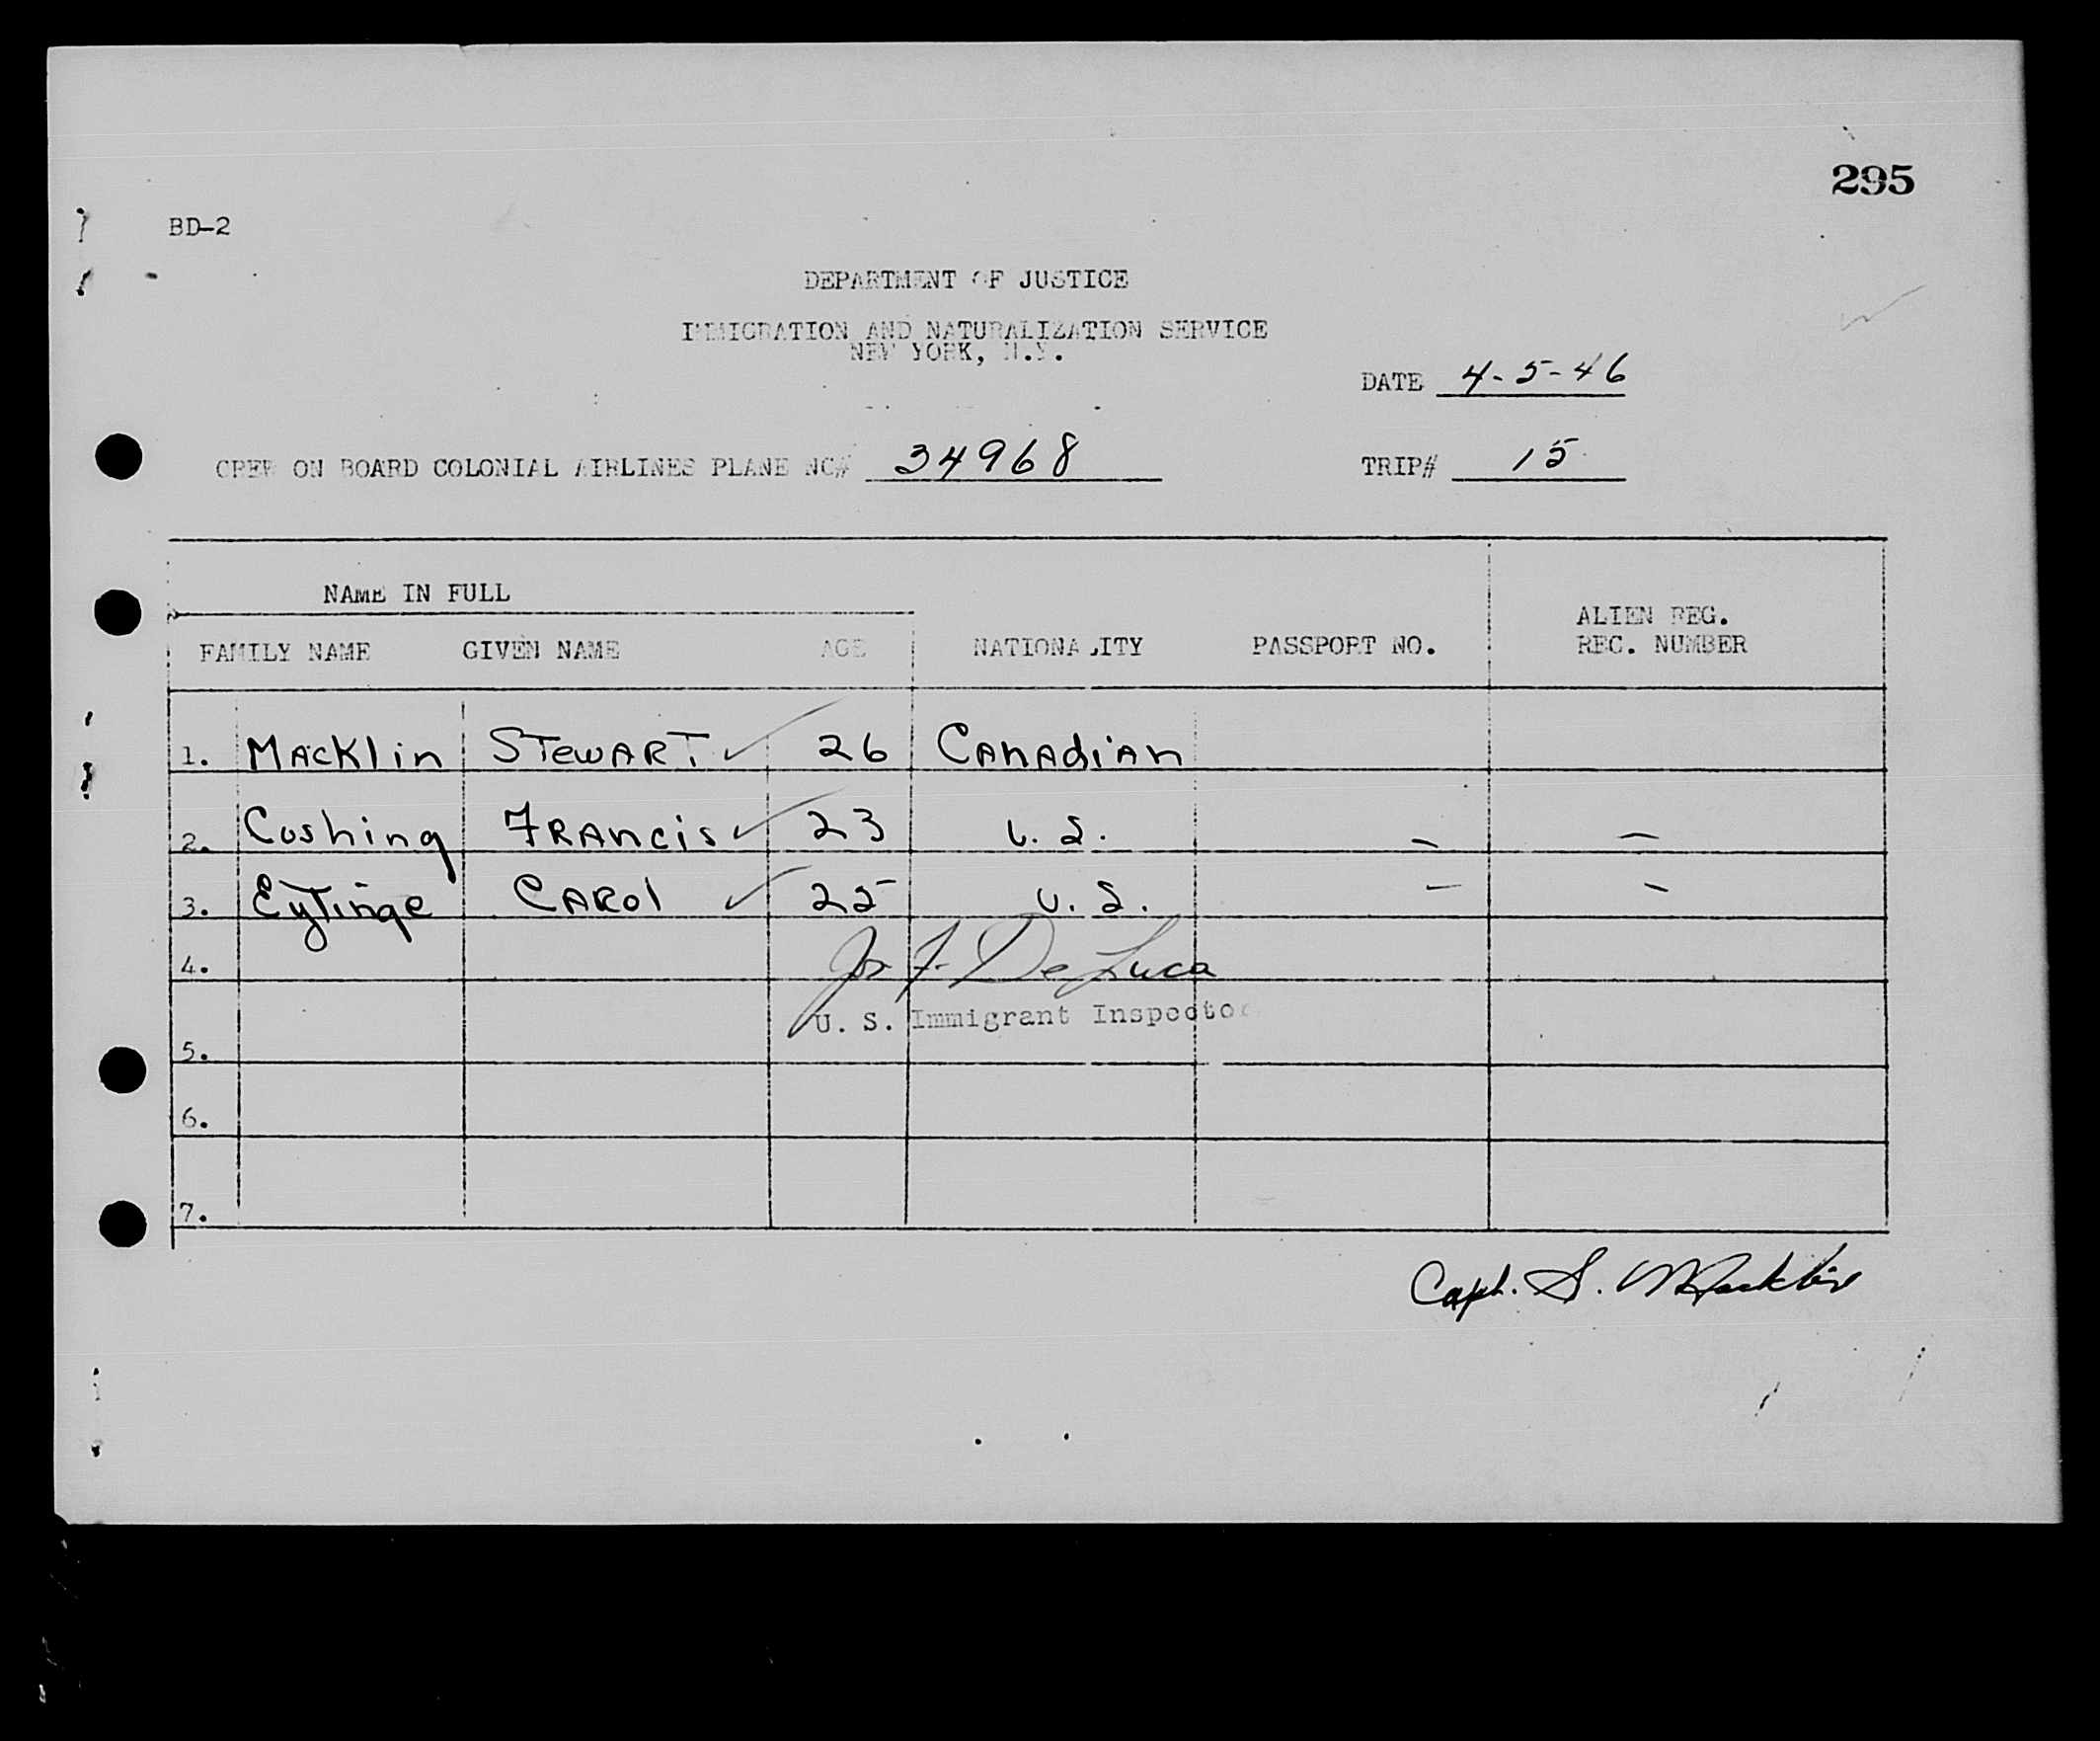 295
BD-2
DEPARTMENT OF JUSTICE
IMMIGRATION AND NATURALIZATION SERVICE
NEW YORK, N.Y.
DATE 4-5-46
CREW ON BOARD COLONIAL AIRLINES PLANE NC# 34968 TRIP# 15
NAME IN FULL
FAMILY NAME GIVEN NAME AGE NATIONALITY PASSPORT NO. ALIEN REG. REC. NUMBER
1. Macklin Stewart ✓ 26 Canadian
2. Cushing Francis ✓ 23 U.S. – –
3. Eytinge Carol ✓ 25 U.S. – –
4. Jos F. De Luca
U. S. Immigrant Inspector
5.
6.
7.
Capt. S. Macklin